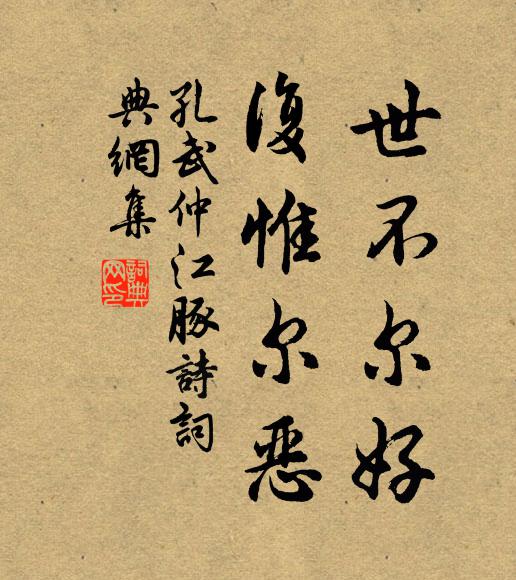 世不尔好
復惟尔惡
孔武仲江豚詩詞
典網集
詞典
网印